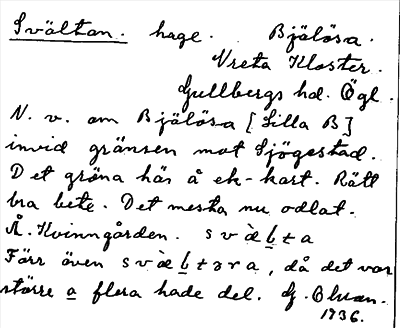 Svältan. hage. Bjälösa.
Vreta Kloster.
Gullbergs hd. Ögl.
N. v. om Bjälösa [Lilla B]
invid gränsen mot Sjögestad.
Det gröna här å ek-kart. Rätt
bra bete. Det mesta nu odlat.
Å. Kvinngården. svæ̀ḇta
Förr även svæ̀ḇtəra, då det var
större a flera hade del. G.
1936.